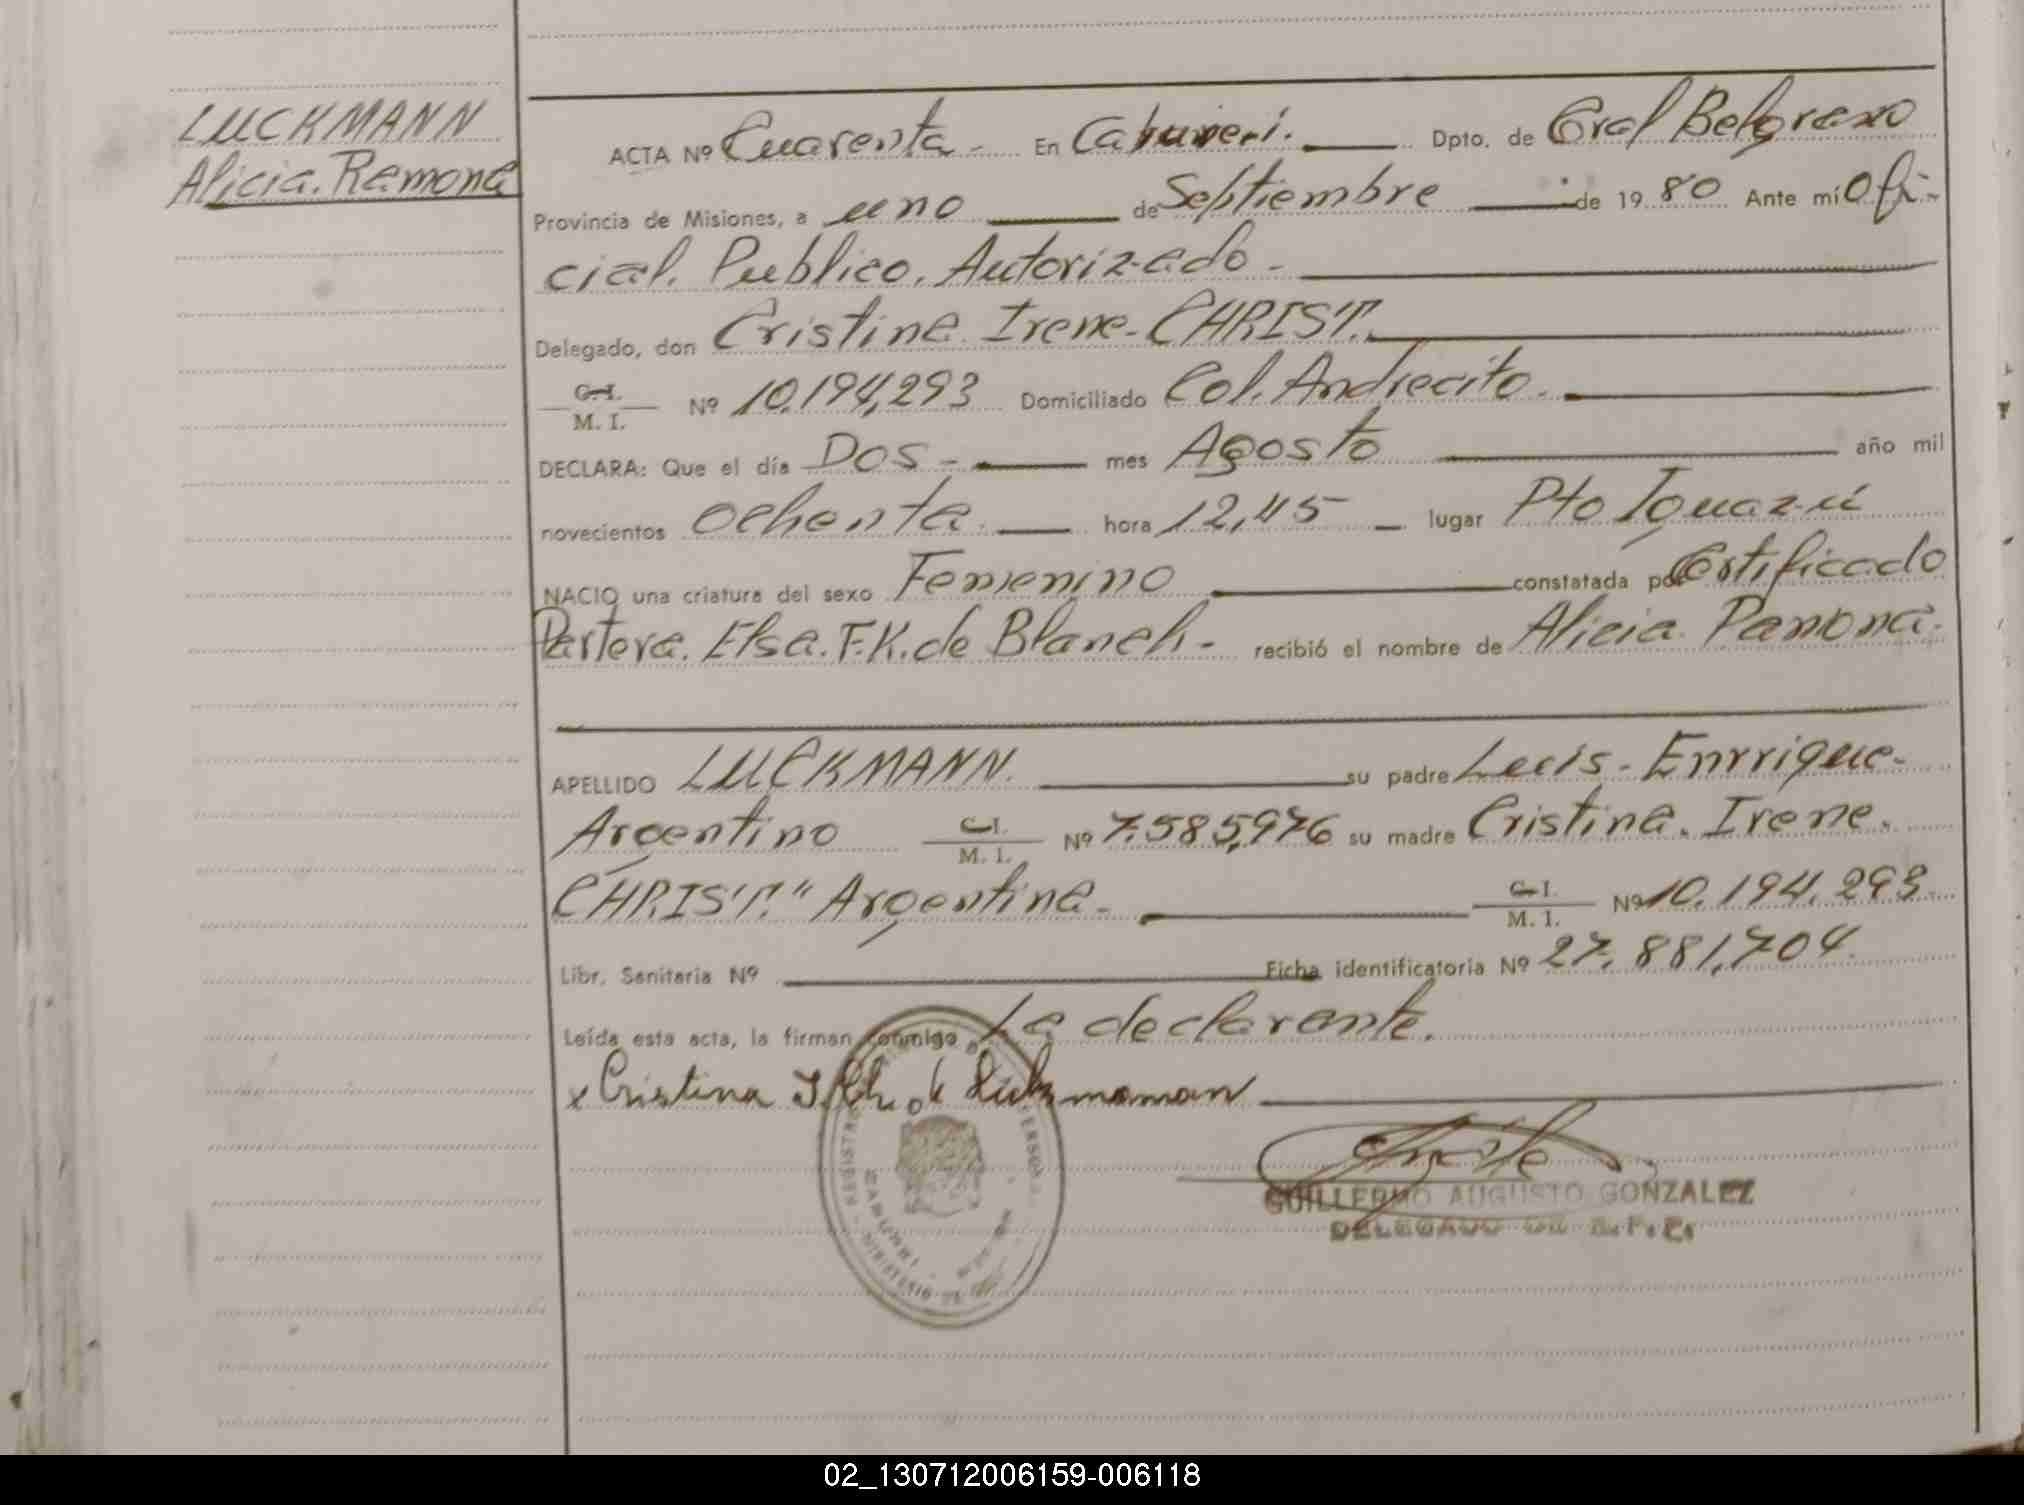 LUCKMANN
Alicia. Ramona
ACTA Nº Cuarenta - En Cabureí. Dpto. de Gral Belgrano
Provincia de Misiones, a uno de Septiembre de 1980 Ante mí Ofi-
cial. Publico. Autorizado -
Delegado, don Cristina Irene - CHRIST.
C. I.
M. I. Nº 10.194,293 Domiciliado Col. Andrecito.
DECLARA: Que el día Dos - mes Agosto año mil
novecientos Ochenta. hora 12,45 lugar Pto Iguazú
NACIO una criatura del sexo Femenino constatada por Certificado
Partera. Elsa. F. K. de Blanch - recibió el nombre de Alicia Ramona.
APELLIDO LUCKMANN. su padre Luis - Enrrique -
Argentino C. I.
M. I. Nº 7.585,976 su madre Cristina. Irene.
CHRIST." Argentina - C. I.
M. I. Nº 10.194.293
Libr. Sanitaria Nº Ficha identificatoria Nº 27.881,704
Leída esta acta, la firman conmigo La declarante.
x Cristina I. Ch. de
GUILLERMO AUGUSTO GONZALEZ
DELEGADO DE R.P.P.
02_130712006159-006118